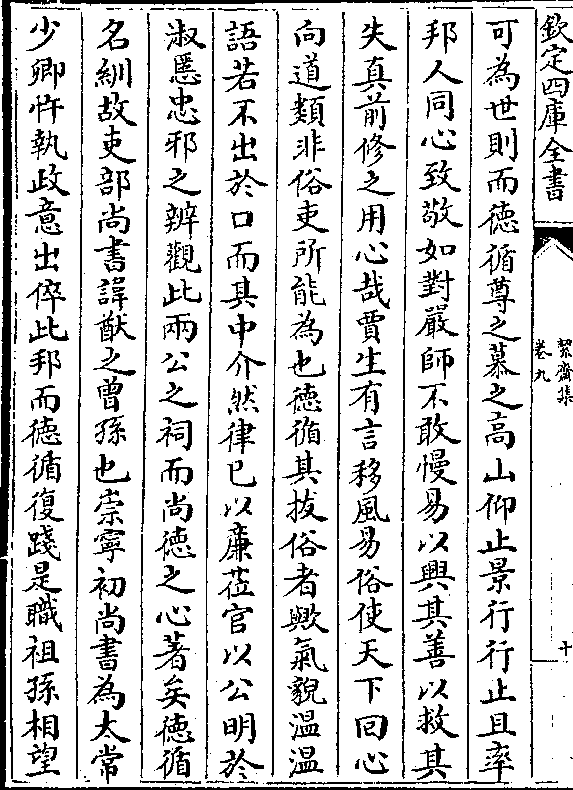 欽定四庫全書
絜齋集
卷九
十
可為世則而德循尊之慕之高山仰止景行行止且率
邦人同心致敬如對嚴師不敢慢易以興其善以救其
失真前修之用心哉賈生有言移風易俗使天下回心
向道類非俗吏所能為也德循其拔俗者歟氣貌溫溫
語若不出於口而其中介然律已以廉莅官以公明於
淑慝忠邪之辨觀此兩公之祠而尚德之心著矣德循
名紃故吏部尚書諱猷之曾孫也崇寧初尚書為太常
少卿忤執政意出倅此邦而德循復踐是職祖孫相望